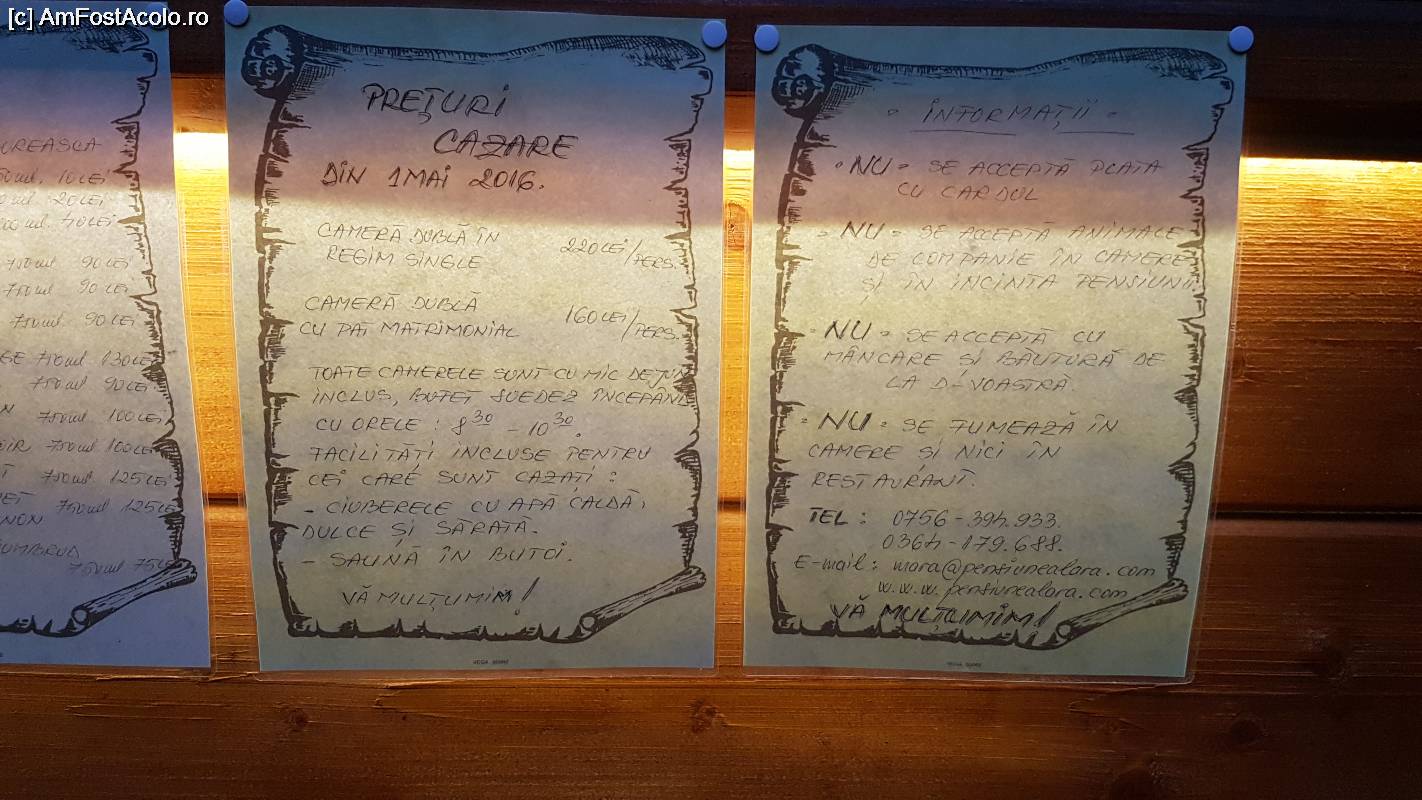 [c] AmFostAcolo.ro
UREASCA
50 ml. 10 LEI
20 LEI
40 LEI
750 ml 90 LEI
750 ml 90 LEI
750 ml 90 LEI
750 ml 130 LEI
750 ml 90 LEI
750 ml 100 LEI
750 ml 100 LEI
750 ml 125 LEI
750 ml 125 LEI
750 ml 75 LEI
PREŢURI
CAZARE
DIN 1 MAI 2016.
CAMERĂ DUBLĂ ÎN
REGIM SINGLE 220 LEI/PERS.
CAMERĂ DUBLĂ
CU PAT MATRIMONIAL 160 LEI/PERS.
TOATE CAMERELE SUNT CU MIC DEJUN
INCLUS, BUFET SUEDEZ ÎNCEPÂND
CU ORELE : 8 30 - 10 30.
FACILITĂŢI INCLUSE PENTRU
CEI CARE SUNT CAZAŢI :
- CIUBERELE CU APĂ CALDĂ,
DULCE ŞI SĂRATĂ.
- SAUNĂ ÎN BUTOI.
VĂ MULŢUMIM!
INFORMAŢII
"NU" SE ACCEPTĂ PLATA
CU CARDUL
"NU" SE ACCEPTĂ ANIMALE
DE COMPANIE ÎN CAMERE
ŞI ÎN INCINTA PENSIUNII
"NU" SE ACCEPTĂ CU
MÂNCARE ŞI BĂUTURĂ DE
LA D-VOASTRĂ.
"NU" SE FUMEAZĂ ÎN
CAMERE ŞI NICI ÎN
RESTAURANT.
TEL : 0756-394.933.
0364-179.688.
E-mail : mara@pensiunealara.com
www.pensiunealara.com
VĂ MULŢUMIM!